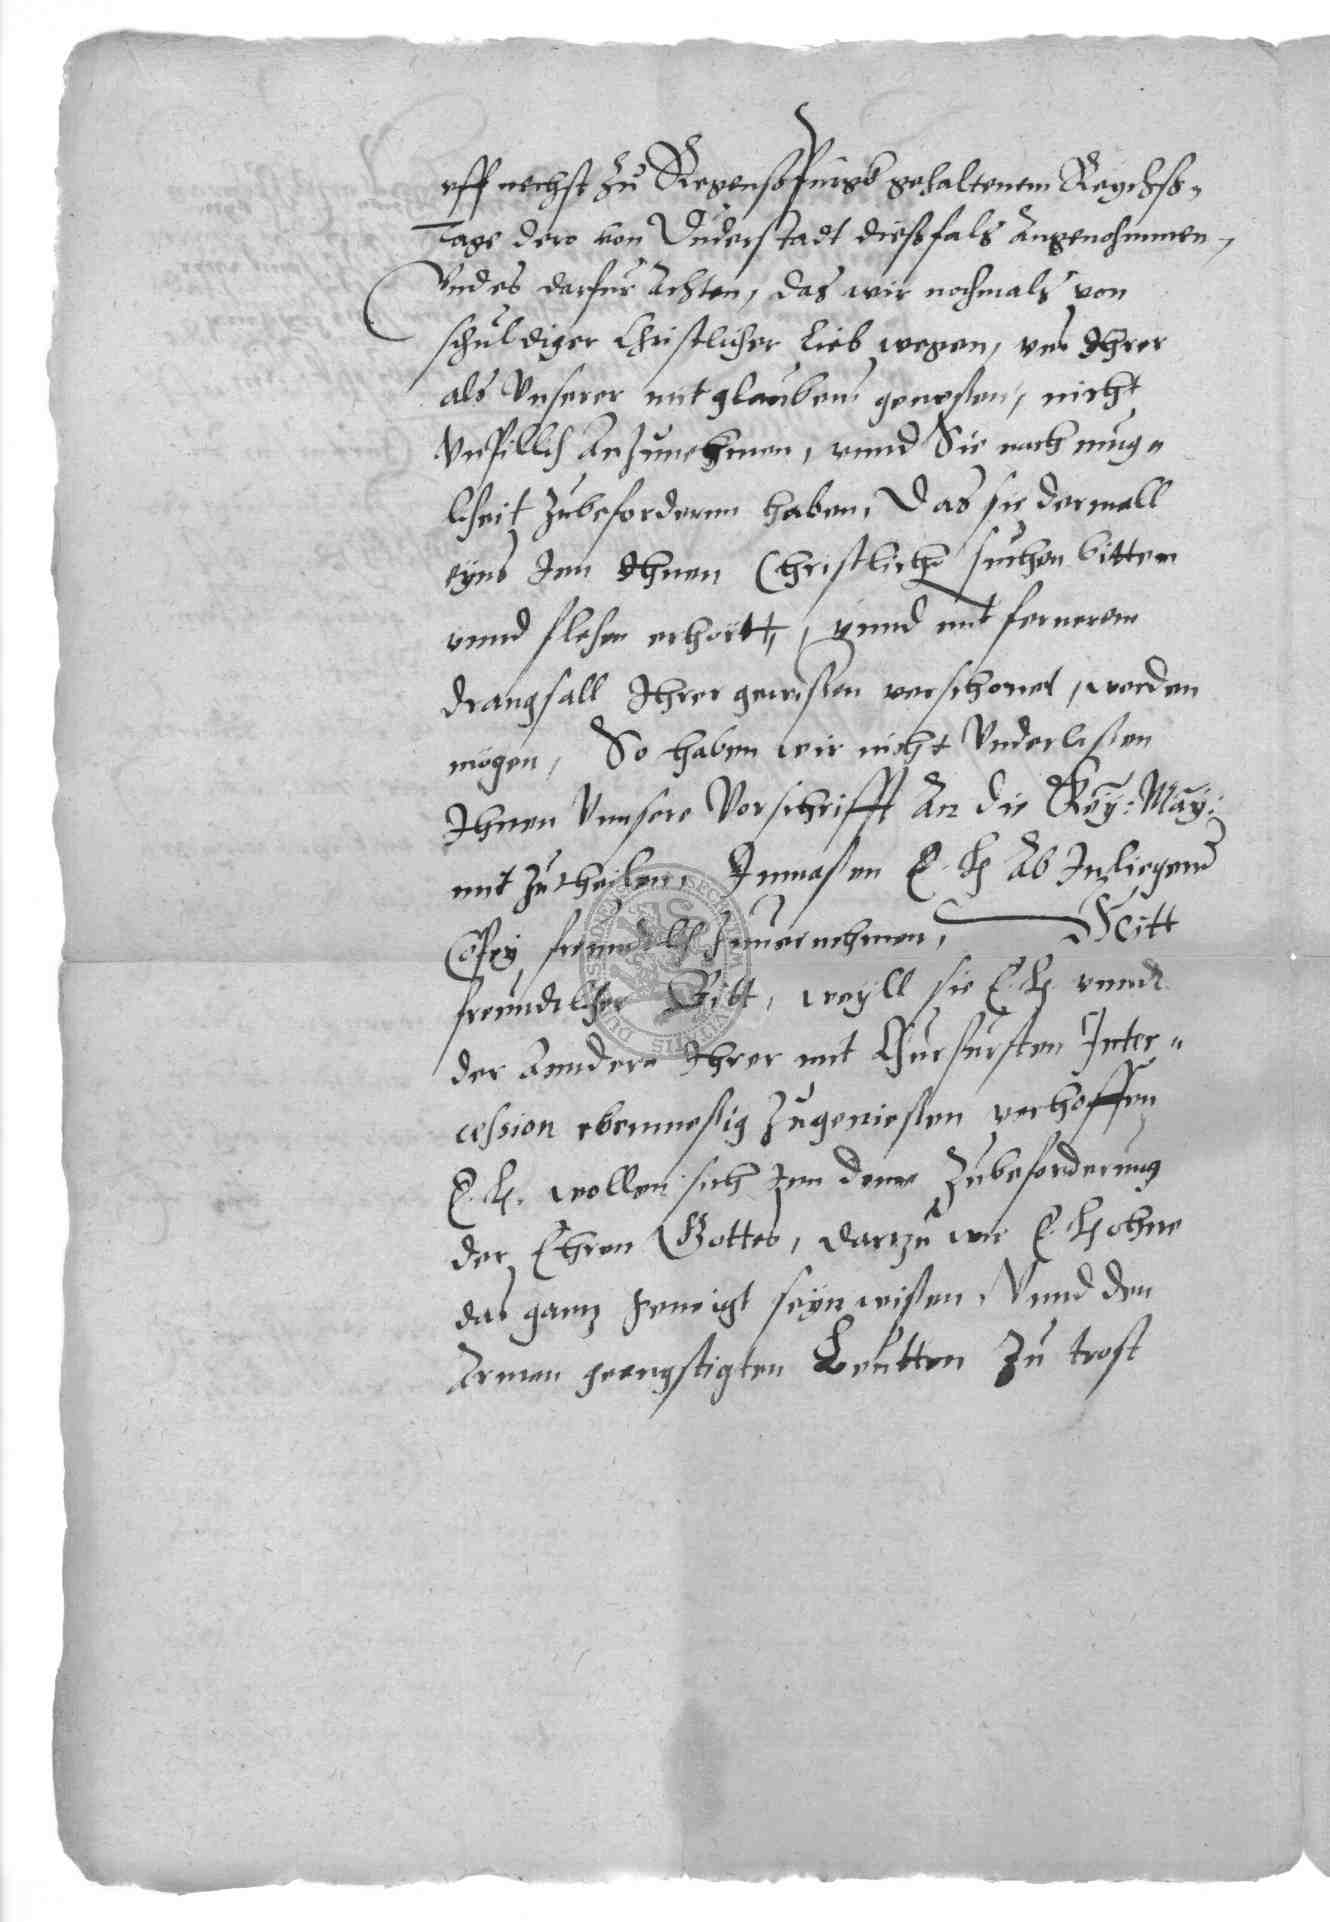 vff nechst zu Regenspurgk gehaltenem Reychs„
Tage dero von Duderstadt diesfals Angenohmmen,
Vnd es darfur Achten, das wir nochmals von
schuldiger Christlicher Lieb wegen, vns Ihrer
als Vnserer mit glaubens genoßen, nicht
Vnpillich Anzunehmen, vnnd Sie nach mug„
licheit zubeforderen haben, Das sie dermall
eyns Inn Ihnen Christlichs suchen bitten
vnnd flehen erhortt, vnnd mit fernerem
drangsall Ihrer gewißen verschonet, werden
mögen, So haben wir nicht Vnderlaßen
Ihnen Vnnsere Vorschrifft An die Key: May:
mit zutheilen, Inmaßen E. L. Ab Inliegend
Copey freundtlich zuuernehmen, Mitt
freundtlicher Bitt, weyll sie E. L. vnnd
der Anndern Ihrer mit Churfursten Inter„
cession ebenmeßig Zugenießen verhoffen
E. L. wollen sich Inn deme Zubeforderung
der Ehren Gottes, dartzu wir E. L. ohne
das gantz geneigt seyn wißen, Vnnd den
Armen geengstigten Leutten Zu trost